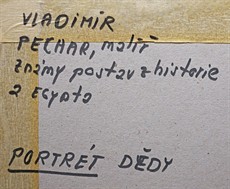 VLADIMÍR
PECHAR, malíř
známy postav z historie
a EGYPTA
PORTRÉT DĚDY